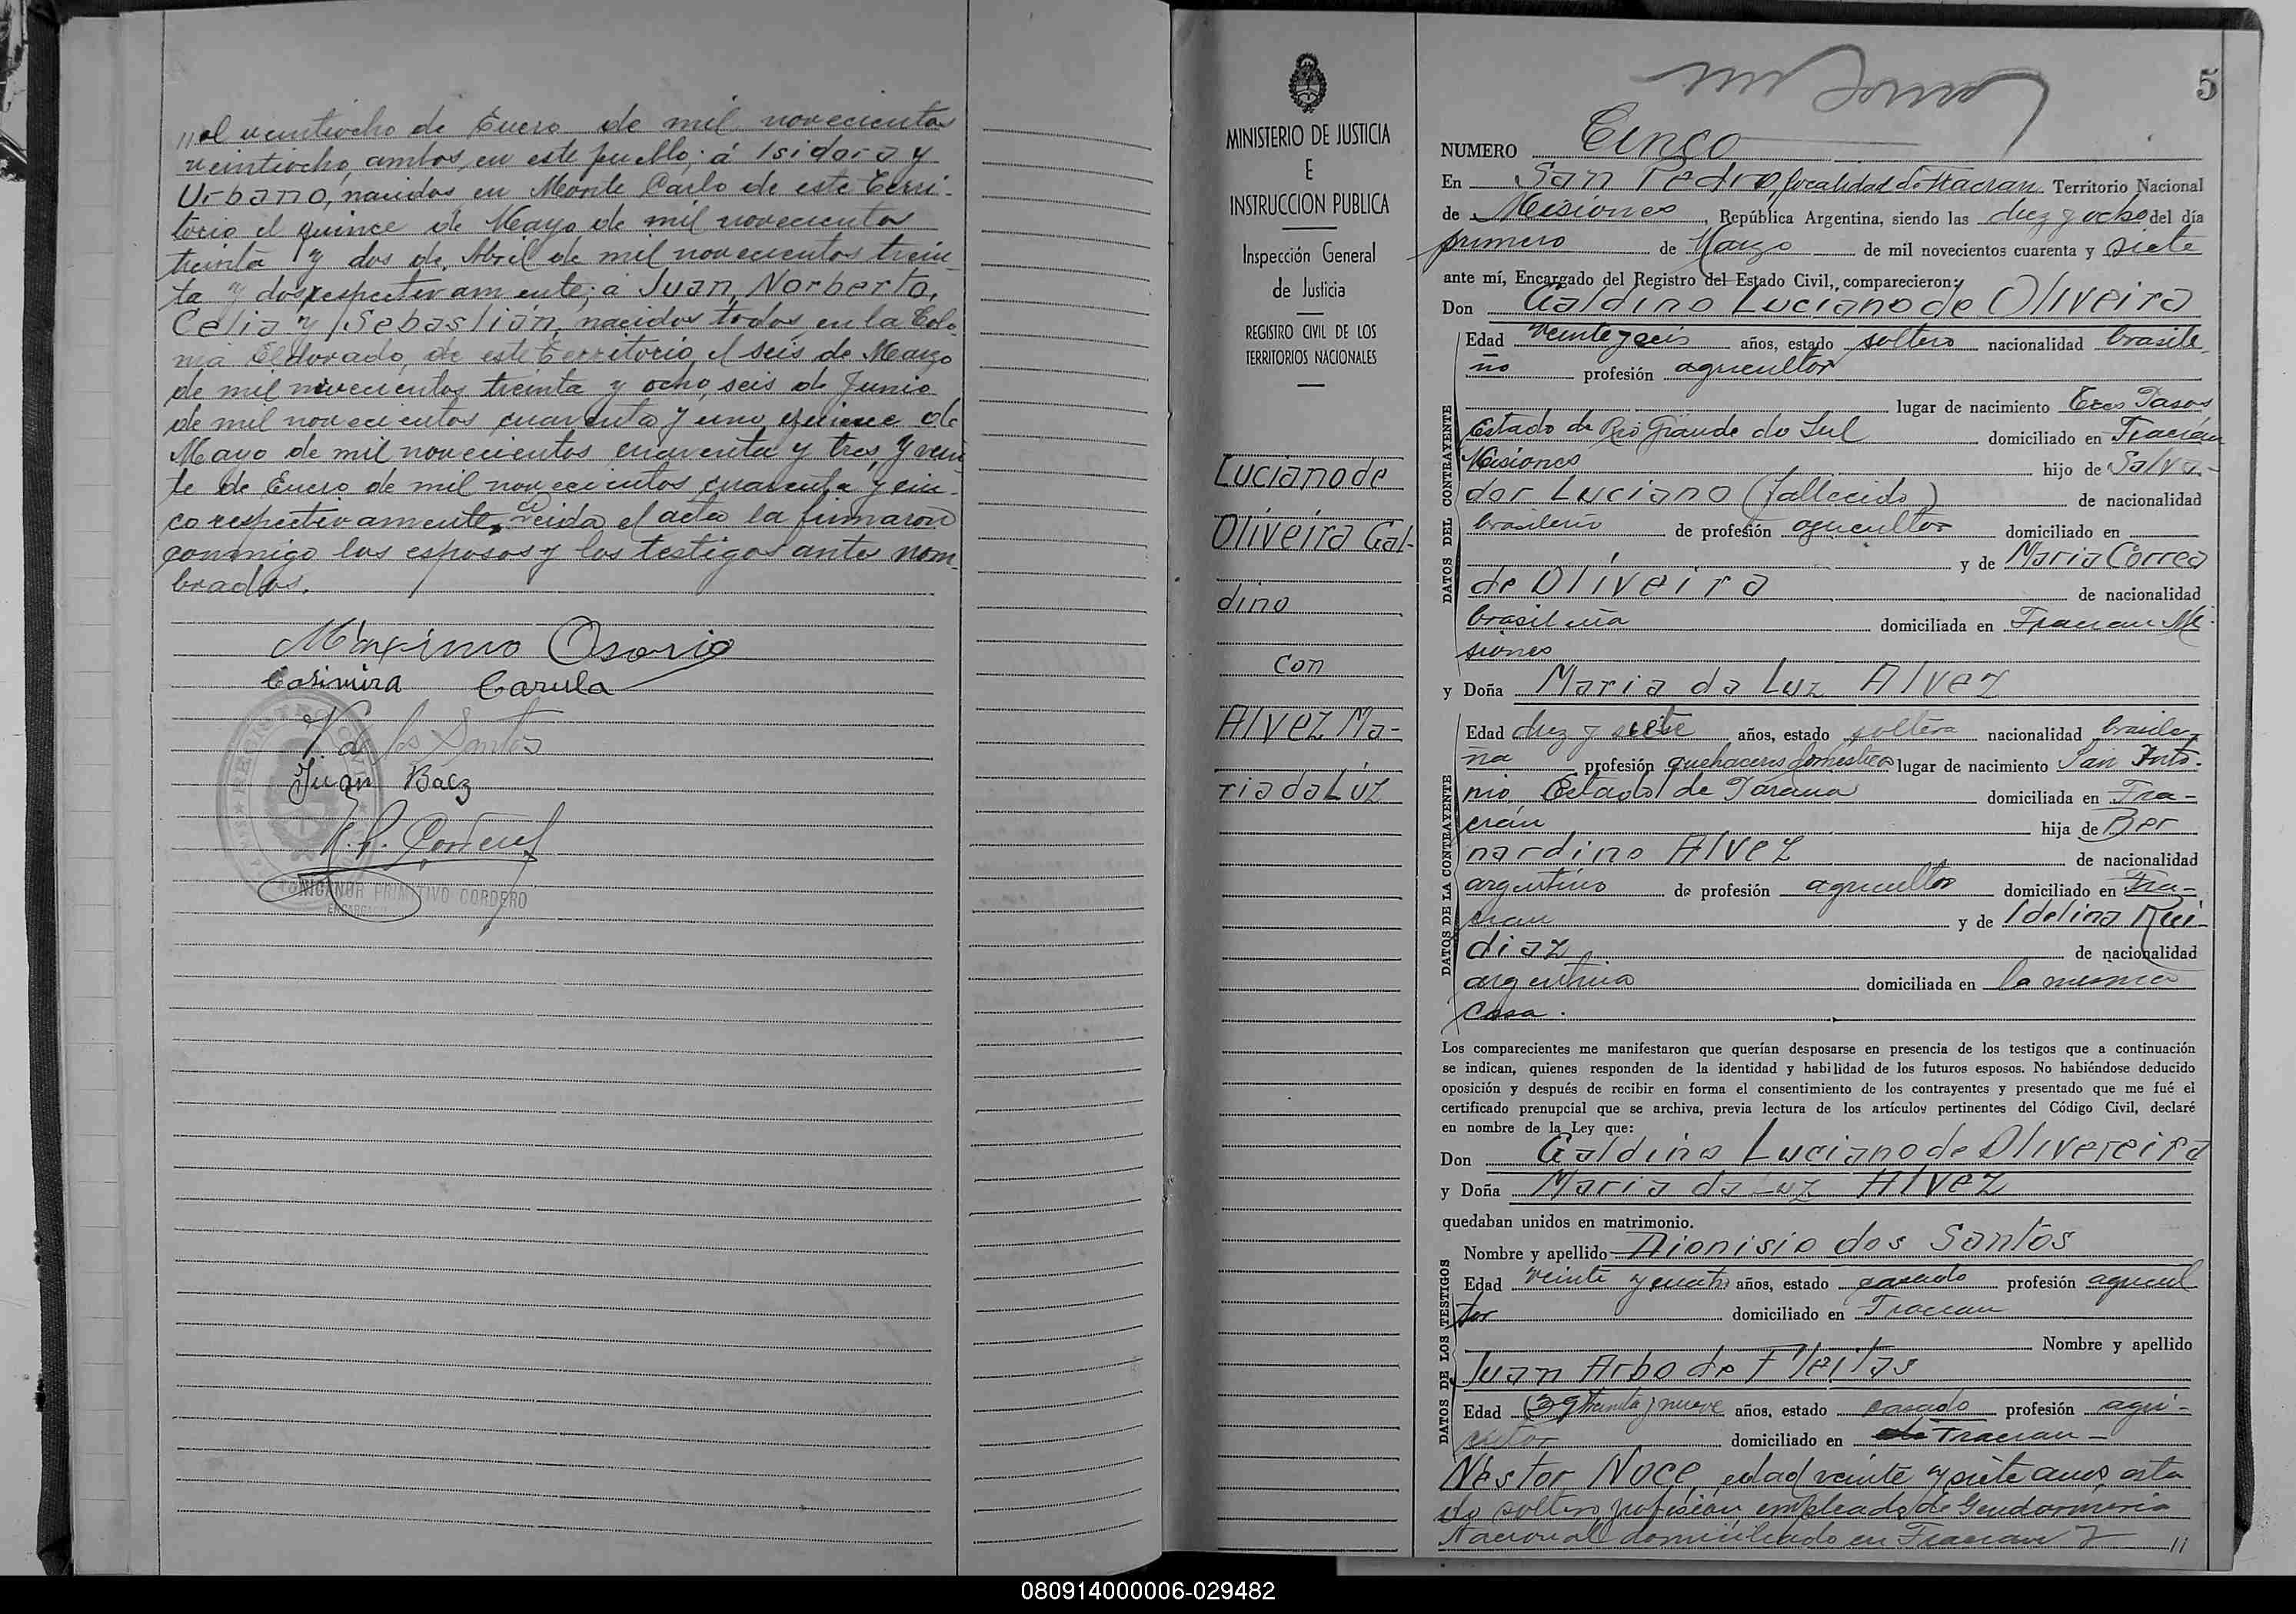 "al veintiocho de Enero de mil novecientos
veintiocho, ambos, en este pueblo; á Isidora y
Urbano, nacidos en Monte Carlo de este Terri-
torio el quince de Mayo de mil novecientos
treinta y dos de Abril de mil novecientos trein-
ta y dos respectivamente; a Juan, Norberto,
Celia y Sebastián, nacidos todos en la Colo-
nia Eldorado, de este Territorio, el seis de Marzo
de mil novecientos treinta y ocho, seis de Junio
de mil novecientos cuarenta y uno, quince de
Mayo de mil novecientos cuarenta y tres, y vein-
te de Enero de mil novecientos cuarenta y cin-
co respectivamente. Leida el acta la firmaron
conmigo los esposos y los testigos antes nom-
brados.
Máximo Osorio
Casimira Carula
V de los Santos
Juan Baez
N. P. Cordero
NICANOR PRIMITIVO CORDERO
ENCARGADO
MINISTERIO DE JUSTICIA
E
INSTRUCCION PUBLICA
Inspección General
de Justicia
REGISTRO CIVIL DE LOS
TERRITORIOS NACIONALES
Luciano de
Oliveira Gal-
dino
con
Alvez Ma-
ria da Lúz
5
NUMERO Cinco
En San Pedro, localidad de Fracran Territorio Nacional
de Misiones, República Argentina, siendo las diez y ocho del día
primero de Marzo de mil novecientos cuarenta y siete
ante mí, Encargado del Registro del Estado Civil, comparecieron:
Don Galdino Luciano de Oliveira
DATOS DEL CONTRAYENTE
Edad veinte y seis años, estado soltero nacionalidad brasile-
ño profesión agricultor
lugar de nacimiento Tres Pasos
Estado de Rio Grande do Sul domiciliado en Fracrán
Misiones hijo de Salva-
dor Luciano (fallecido) de nacionalidad
brasileño de profesión agricultor domiciliado en
y de Maria Correa
de Oliveira de nacionalidad
brasileña domiciliada en Fracran Mi-
siones
y Doña Maria da Luz Alvez
DATOS DE LA CONTRAYENTE
Edad diez y siete años, estado soltera nacionalidad brasile-
ña profesión quehaceres domesticos lugar de nacimiento San Anto-
nio, Estado de Parana domiciliada en Fra-
crán hija de Ber
nardino Alvez de nacionalidad
argentino de profesión agricultor domiciliado en Fra-
cran y de Idelina Rui-
diaz de nacionalidad
argentina domiciliada en la misma
casa.
Los comparecientes me manifestaron que querían desposarse en presencia de los testigos que a continuación
se indican, quienes responden de la identidad y habilidad de los futuros esposos. No habiéndose deducido
oposición y después de recibir en forma el consentimiento de los contrayentes y presentado que me fué el
certificado prenupcial que se archiva, previa lectura de los artículos pertinentes del Código Civil, declaré
en nombre de la Ley que:
Don Galdino Luciano de Olivereira
y Doña Maria da Luz Alvez
quedaban unidos en matrimonio.
DATOS DE LOS TESTIGOS
Nombre y apellido Dionisio dos Santos
Edad veinte y cuatro años, estado casado profesión agricul
tor domiciliado en Fracran
Nombre y apellido
Juan Arbo de Fleitas
Edad (39) treinta y nueve años, estado casado profesión agri-
cultor domiciliado en Fracran
Néstor Noce, edad veinte y siete anos, esta
do soltero, profesión, empleado de Gendarmeria
Nacional domiciliado en Fracran y "
080914000006-029482